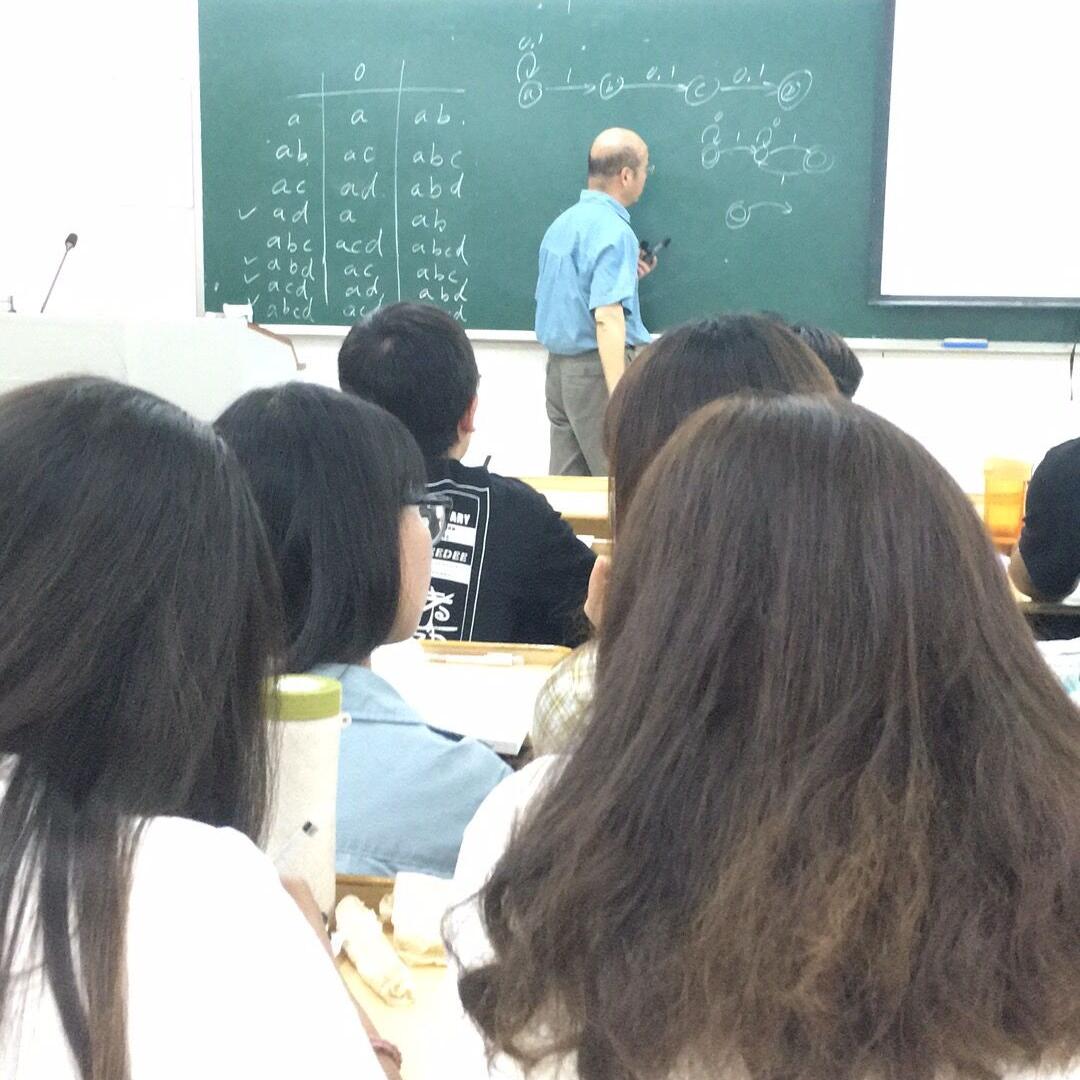 0
a a ab
ab ac abc
ac ad abd
✓ ad a ab
abc acd abcd
✓ abd ac abc
✓ acd ad abd
✓ abcd
0,1
a 1 b 0,1 c 0,1 d
0 1 0 1
1
ARY
EEDEE